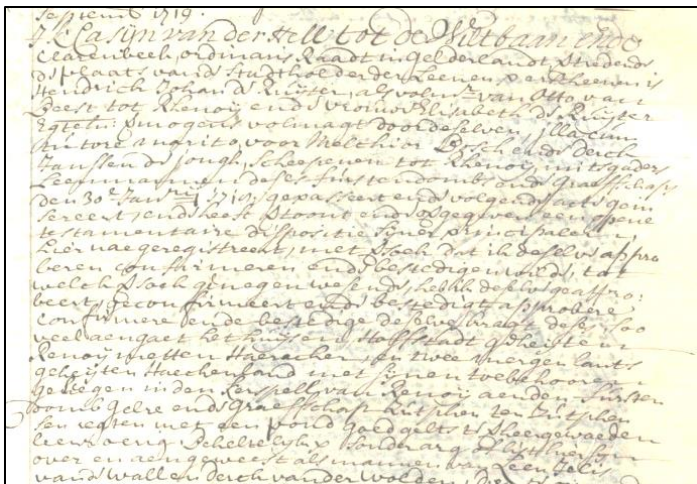 Septemb 1719.
Casijn van der Hell tot de Wiltbaan ende
Clarenbeek, ordinaris Raadt in Gelderlandt
de plaats van de Stadtholder der Leenen
Hendrich Johan de Ruijter, als volm. van Otto van
Beest tot Rhenoij ende vrouw Elisabeth de Ruijter
volmagt door deselven, illa cum
tutore marito, voor Melchior Bosch ende Derck
Janssen de Jongh, scheepenen tot Rhenoij mitsgaders
Leenmannen deses furstendombs ende Graefschaps
den 30e Janrij 1719, gepasseert ende volgende acte
sereert, ende heeft ende eene opene
testamentaire dispositie sijnes principalen,
hier nae geregistreert, met versoek dat ik deselve appro
beren confirmeren ende bestedigen wilde, tot
welch versoek genegen wesende, hebbe deselve geappro:
beert, geconfirmeert ende bestedigt, approbere
confirmere ende bestedige deselve kragt deses, soo
veel aengaet het huijs en Hoffstadt geheite
Renoij metten Haeracker, en twee mergen lants
geheijten Haeckenland met sijnen toebehooren
gelegen in den Kerspell van Renoij aen den fursten
domb Gelre ende Graefschaft Zutphen ten Zutphen
sen regten met een pond goed gelts te heergewaeden
leenroerig Beheltelijk sonder argelist, hier
over en aen geweest als mannen van Leen Jelis
van de Wall en Derch van der Wolden,